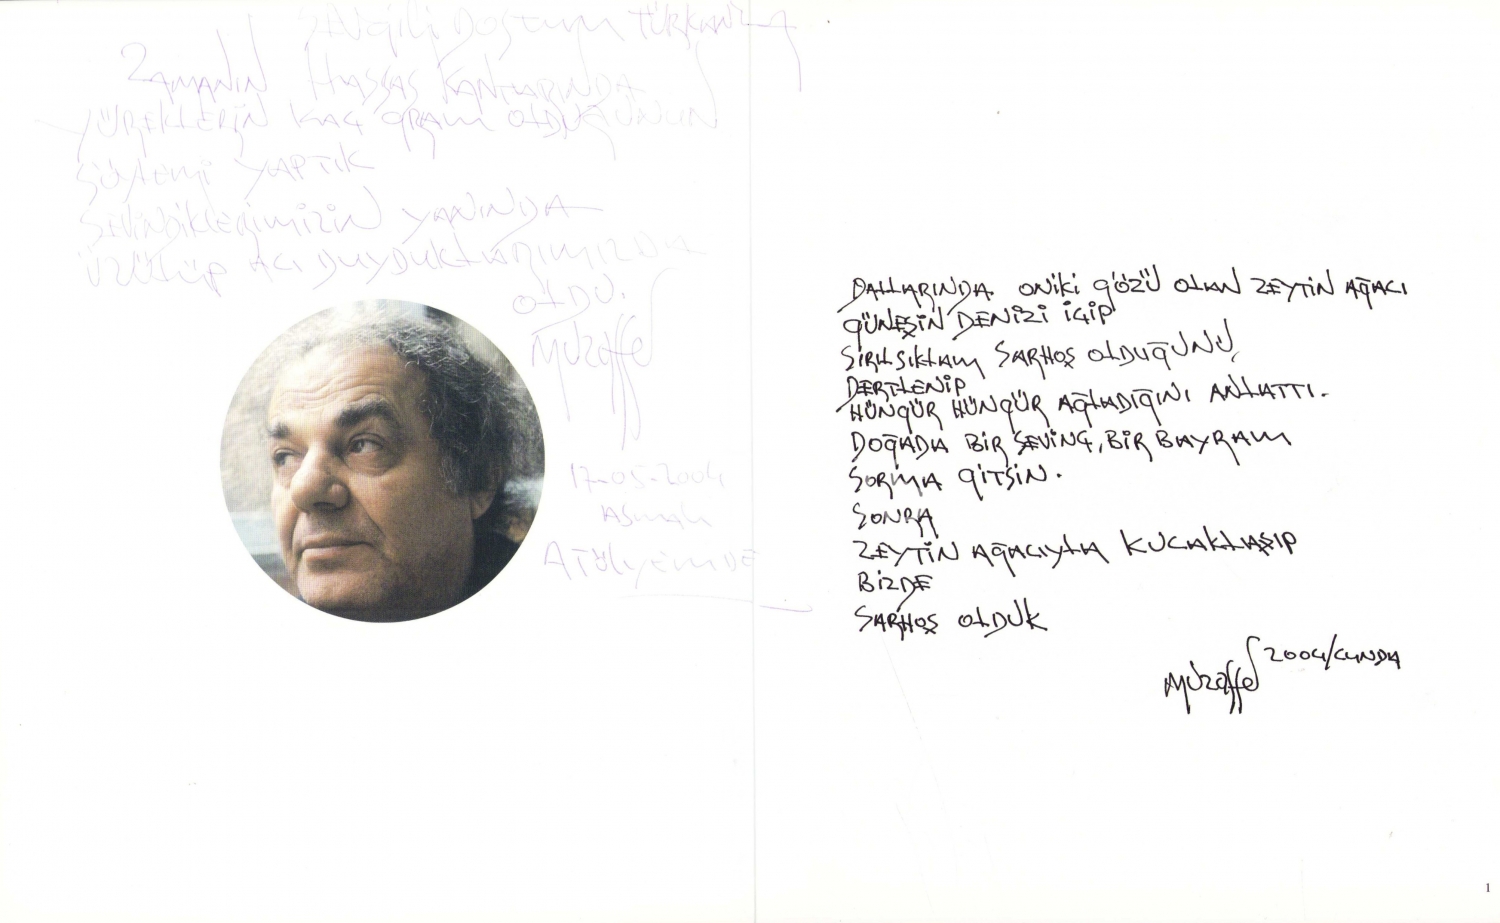 SEVgiLi DOSTUM TÜRKAN'A
ZAMANIN HASSAS KANTARINDA
YÜREKLERİN KAÇ GRAM OLDUĞUNUN
SÖYLEMİ YAPTIK
SEVİNDİKLERİMİZİN YANINDA
ÜZÜLÜP ACI DUYDUKLARIMIZDA
OLDU.
Muzaffer
17-05-2004
ASMALI
ATÖLYEMDE
DALLARINDA ONİKİ GÖZÜ OLAN ZEYTİN AĞACI
GÜNEŞİN DENİZİ İÇİP
SIRILSIKLAM SARHOŞ OLDUĞUNU,
DERTLENİP
HÜNGÜR HÜNGÜR AĞLADIĞINI ANLATTI.
DOĞADA BİR SEVİNÇ, BİR BAYRAM
SORMA GİTSİN.
SONRA
ZEYTİN AĞACIYLA KUCAKLAŞIP
BİZDE
SARHOŞ OLDUK
Muzaffer 2004/CUNDA
1